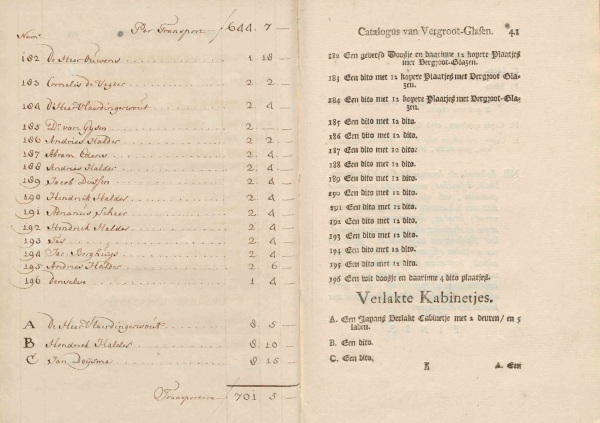 Num.
Per Transport 644. 7 —
182 De Heer Ouwens 1 18 —
183 Cornelis de Vegter 2 2 —
184 De Heer Vlaerdingerwout 2 4 —
185 Dr. van Gysen 2 — —
186 Andries Halder 2 2 —
187 Abram Edens 2 4 —
188 Andries Halder 2 4 —
189 Jacob 2 4 —
190 Hendrik Halder 2 4 —
191 Adrianus Scheer 2 4 —
192 Hendrick Halder 2 4 —
193 Tas 2 4 —
194 Jac: Borghuys 2 4 —
195 Andries Halder 2 6 —
196 1 4 —
A De Heer Vlaerdingerwout 8 5 —
B Hendrick Halder 8 10 —
C Jan 8 15 —
Transporteere 701 5 —
Catalogus van Vergroot-Glasen. 41
182 Een geverfd Doosje en daarinne 12 kopere Plaatjes
met Vergroot-Glazen.
183 Een dito met 12 kopere Plaatjes met Vergroot-Gla-
zen.
184 Een dito met 11 kopere Plaatjes met Vergroot-Gla-
zen.
185 Een dito met 12 dito.
186 Een dito met 12 dito.
187 Een dito met 12 dito.
188 Een dito met 12 dito.
189 Een dito met 12 dito.
190 Een dito met 12 dito.
191 Een dito met 12 dito.
192 Een dito met 12 dito.
193 Een dito met 12 dito.
194 Een dito met 12 dito.
195 Een dito met 12 dito.
196 Een wit doosje en daarinne 4 dito plaatjes.
Verlakte Kabinetjes.
A. Een Japans Verlakt Cabinetje met 2 deuren/ en 5
laden.
B. Een dito.
C. Een dito.
A. Een